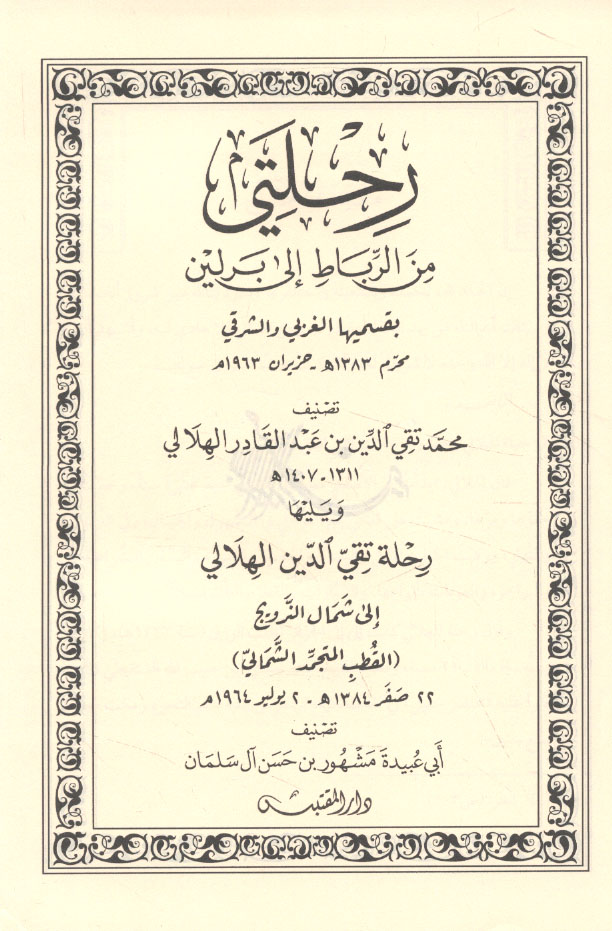 رِحْلَتِي
مِنَ الرِّبَاطِ إِلَى بَرلين
بقسميها الغربي والشرقي
محرّم ١٣٨٣هـ - حزيران ١٩٦٣م
تصنيف
محمّد تقي الدّين بن عَبد القَادر الهِلَالي
١٣١١ - ١٤٠٧هـ
وَيَليْهَا
رِحْلة تقيّ الدّين الهِلَالي
إلى شمَال النَّرويج
(القُطبِ المتجمِّد الشَّمَاليّ)
٢٢ صَفَر ١٣٨٤هـ - ٢ يوليو ١٩٦٤م
تصنيف
أَبي عُبيدةَ مَشْهُور بن حَسَن آل سَلمَان
دار المقتبس